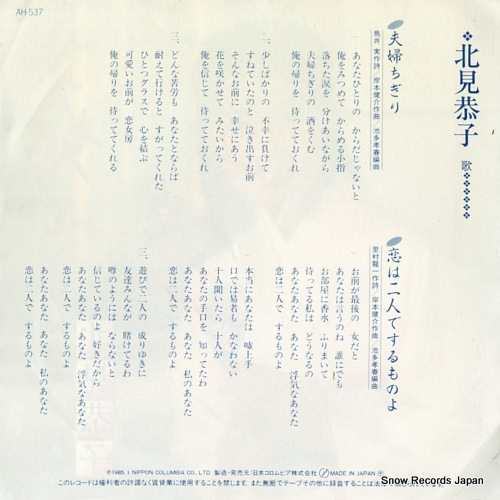 AH-537
北見恭子 歌
夫婦ちぎり
鳥井実作詩/岸本健介作曲/池多孝春編曲
一、
あなたひとりの からだじゃないと
俺をみつめて からめる小指
落ちた涙を 分けあいながら
夫婦ちぎりの 酒をくむ
俺の帰りを 待っててておくれ
二、少しばかりの 不幸に負けて
すねていたのと 泣き出すお前
そんなお前に 幸せにあう
花を咲かせて みたいから
俺を信じて 待っててておくれ
三、どんな苦労も あなたとならば
耐えて行けると すがってくれた
ひとつグラスで 心を結ぶ
可愛いお前が 恋女房
俺の帰りを 待っててくれる
恋は二人でするものよ
里村龍一作詩/岸本健介作曲/池多孝春編曲
一、
お前が最後の 女だと
あなたは言うのね 誰にでも
お部屋に香水 ふりまいて
待ってる私は どうなるの
あなたあなた あなた 浮気なあなた
恋は二人で するものよ
二、
本当にあなたは 嘘上手
口では易者も かなわない
十人聞いたら 十人が
あなたの手口を 知ってたわ
あなたあなた あなた 私のあなた
恋は二人で するものよ
三、遊びで二人の 成りゆきに
友達みんなが 賭けてるわ
噂のようには ならないと
信じているのよ 好きだから
あなたあなた あなた 浮気なあなた
恋は二人で するものよ
あなたあなた あなた 私のあなた
恋は二人で するものよ
℗1985.1 NIPPON COLUMBIA CO., LTD. 製造・発売元/日本コロムビア株式会社 MADE IN JAPAN
このレコードは権利者の許諾なく賃貸業に使用することを禁じます。また無断でテープその他に録音することは法律で
Snow Records Japan